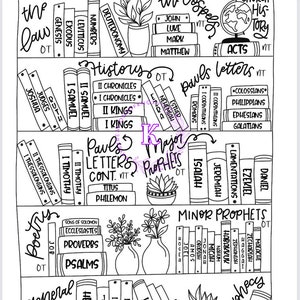 the Law OT
GENESIS
EXODUS
LEVITICUS
NUMBERS
DEUTERONOMY
the Gospels NT
JOHN
LUKE
MARK
MATTHEW
HIS-
TORY NT
ACTS
JOSHUA
JUDGES
RUTH
1 SAMUEL
2 SAMUEL
History OT
II CHRONICLES
I CHRONICLES
II KINGS
I KINGS
EZRA
NEHEMIAH
ESTHER
Pauls letters NT
ROMANS
I CORINTHIANS
II CORINTHIANS
COLOSSIANS
PHILIPPIANS
EPHESIANS
GALATIANS
I THESSALONIANS
II THESSALONIANS
I TIMOTHY
II TIMOTHY
Pauls
LETTERS
CONT. NT
TITUS
PHILEMON
Major
Prophets OT
ISAIAH
JEREMIAH
LAMENTATIONS
EZEKIEL
DANIEL
K
Poetry OT
SONG OF SOLOMON
ECCLESIASTES
PROVERBS
PSALMS
JOB
MINOR PROPHETS OT
HOSEA
JOEL
AMOS
OBADIAH
JONAH
MICAH
NAHUM
HABAKKUK
ZEPHANIAH
HAGGAI
ZECHARIAH
MALACHI
general